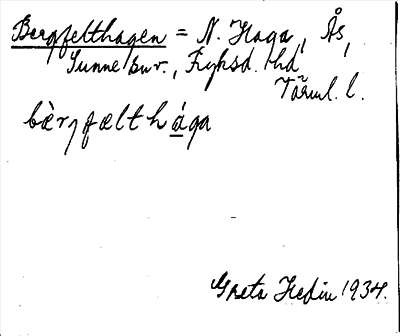 Bergfelthagen = N. Haga, Ås,
Sunne snr., Fryksd. hd
Värml. l.
bèrjfælthága
Greta Hedin 1934.